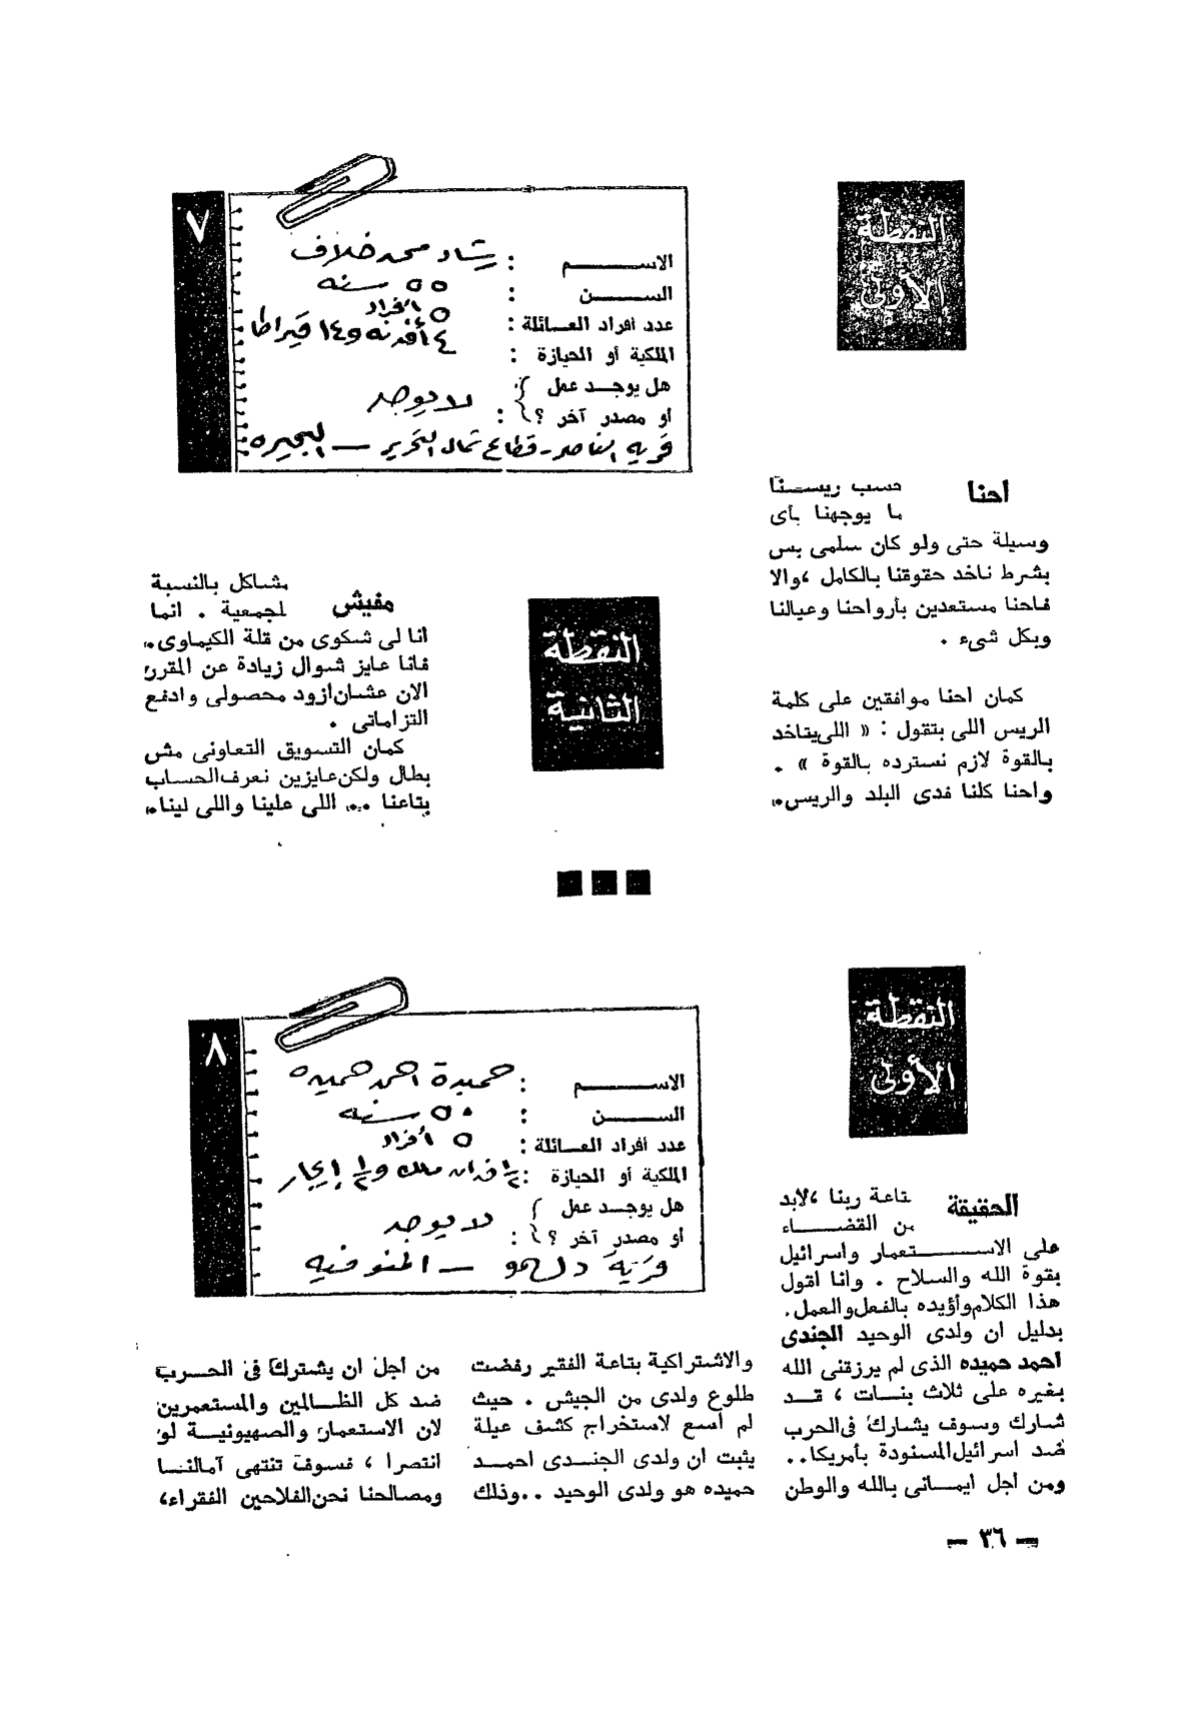 ٧
الاســـــــم : رشاد محمد خلاف
الســـــن : ٥٥ سنه
عدد أفراد العـــائلة : ٥ أفراد
الملكية أو الحيازة : ٤ أفدنه و١٤ قيراطا
هل يوجـــد عمل
أو مصدر آخر ؟ : لا يوجد
قريه الناصر - قطاع شمال التحرير — البحيره
النقطة
الأولى
احنا حسب ريســـنا
ما يوجهنا بأى
وسيلة حتى ولو كان سلمى بس
بشرط ناخد حقوقنا بالكامل ، والا
فاحنا مستعدين بأرواحنا وعيالنا
وبكل شىء .
كمان احنا موافقين على كلمة
الريس اللى بتقول : « اللى يتاخد
بالقوة لازم نسترده بالقوة » .
واحنا كلنا فدى البلد والريس..
النقطة
الثانية
مفيش مشاكل بالنسبة
لجمعية . انما
انا لى شكوى من قلة الكيماوى..
فانا عايز شوال زيادة عن المقرر
الان عشان ازود محصولى وادفع
التزاماتى .
كمان التسويق التعاونى مش
بطال ولكن عايزين نعرف الحساب
بتاعنا .. اللى علينا واللى لينا..
٨
الاســـــــم : حميدة احمد حميده
الســـــن : ٥٠ سنه
عدد أفراد العـــائلة : ٥ أفراد
الملكية أو الحيازة : ١/٢ فدان ملك و١/٢ إيجار
هل يوجـــد عمل
أو مصدر آخر ؟ : لا يوجد
قرية دلهمو — المنوفيه
النقطة
الأولى
الحقيقة بتاعة ربنا ، لابد
من القضـــاء
على الاســـتعمار واسرائيل
بقوة الله والسلاح . وانا اقول
هذا الكلام وأؤيده بالفعل والعمل.
بدليل ان ولدى الوحيد الجندى
احمد حميده الذى لم يرزقنى الله
بغيره على ثلاث بنـــات ، قـــد
شارك وسوف يشارك فى الحرب
ضد اسرائيل المسنودة بأمريكا..
ومن اجل ايمـــانى بالله والوطن
والاشتراكية بتاعة الفقير رفضت
طلوع ولدى من الجيش . حيث
لم أسع لاستخراج كشف عيلة
يثبت ان ولدى الجنـــدى احمـــد
حميده هو ولدى الوحيد .. وذلك
من اجل ان يشترك فى الحـــرب
ضد كل الظـــالمين والمستعمرين
لان الاستعمار والصهيونيـــة لو
انتصرا ، فسوف تنتهى آمالنـــا
ومصالحنا نحن الفلاحين الفقراء،
— ٣٦ —